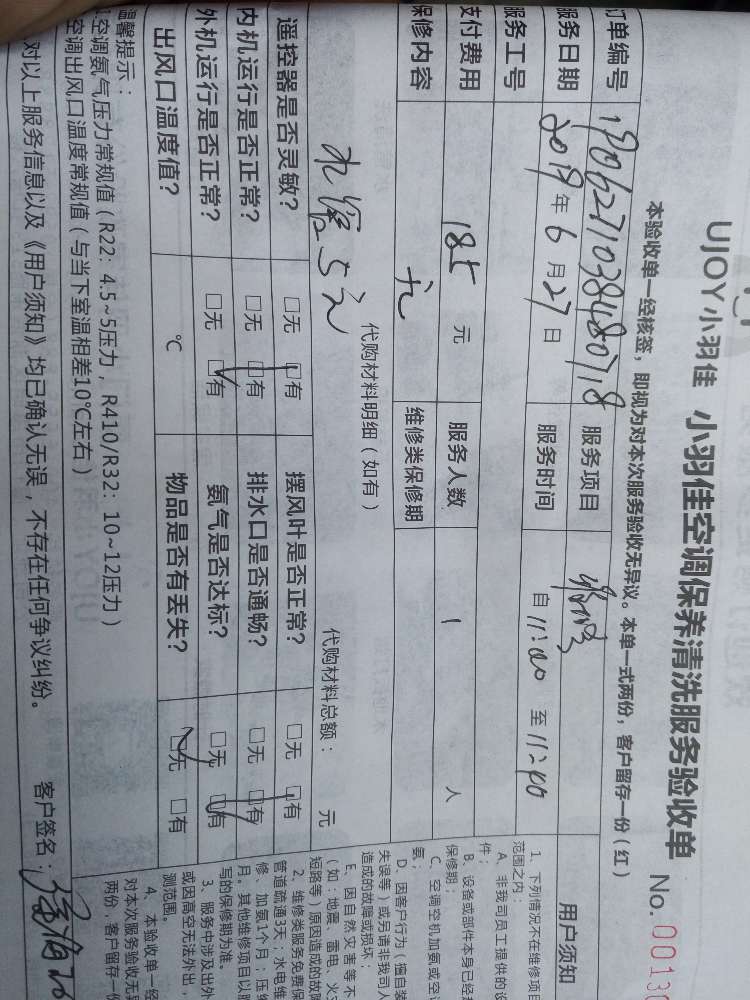 UJOY小羽佳 小羽佳空调保养清洗服务验收单 No.
本验收单一经核签，即视为对本次服务验收无异议。本单一式两份，客户留存一份（红）
订单编号 服务项目
服务日期 2019 年 6 月 27 日 服务时间 自 11:00 至 11:40
服务工号
支付费用 185 元 服务人数 1 人
保修内容 无 维修类保修期
代购材料明细（如有） 代购材料总额： 元
遥控器是否灵敏？ □无 □有 摆风叶是否正常？ □无 □有
内机运行是否正常？ □无 □有 排水口是否通畅？ □无 □有
外机运行是否正常？ □无 □有 氨气是否达标？ □无 □有
出风口温度值？ ℃ 物品是否有丢失？ □无 □有
温馨提示：
空调氨气压力常规值（R22：4.5~5压力，R410/R32：10~12压力）
空调出风口温度常规值（与当下室温相差10℃左右）
对以上服务信息以及《用户须知》均已确认无误，不存在任何争议纠纷。 客户签名：
用户须知
1、下列情况不在维修项目
范围之内：
A、非我司员工提供的设
件；
B、设备或部件本身已经
保修期；
C、空调空机加氨或空
氨；
D、因客户行为（擅自
失误等）或另请非我司人
造成的故障或损坏；
E、因自然灾害等不
（如：地震、雷电、火
短路等）原因造成的故障
2、维修类服务免费保
管道疏通3天；水电维
修、加氨1个月；压
月。其他维修项目以
写的保修期为准。
3、服务中涉及出外
或因高空无法外出，
测范围。
4、本验收单一经
对本次服务验收无异
两份，客户留存一份